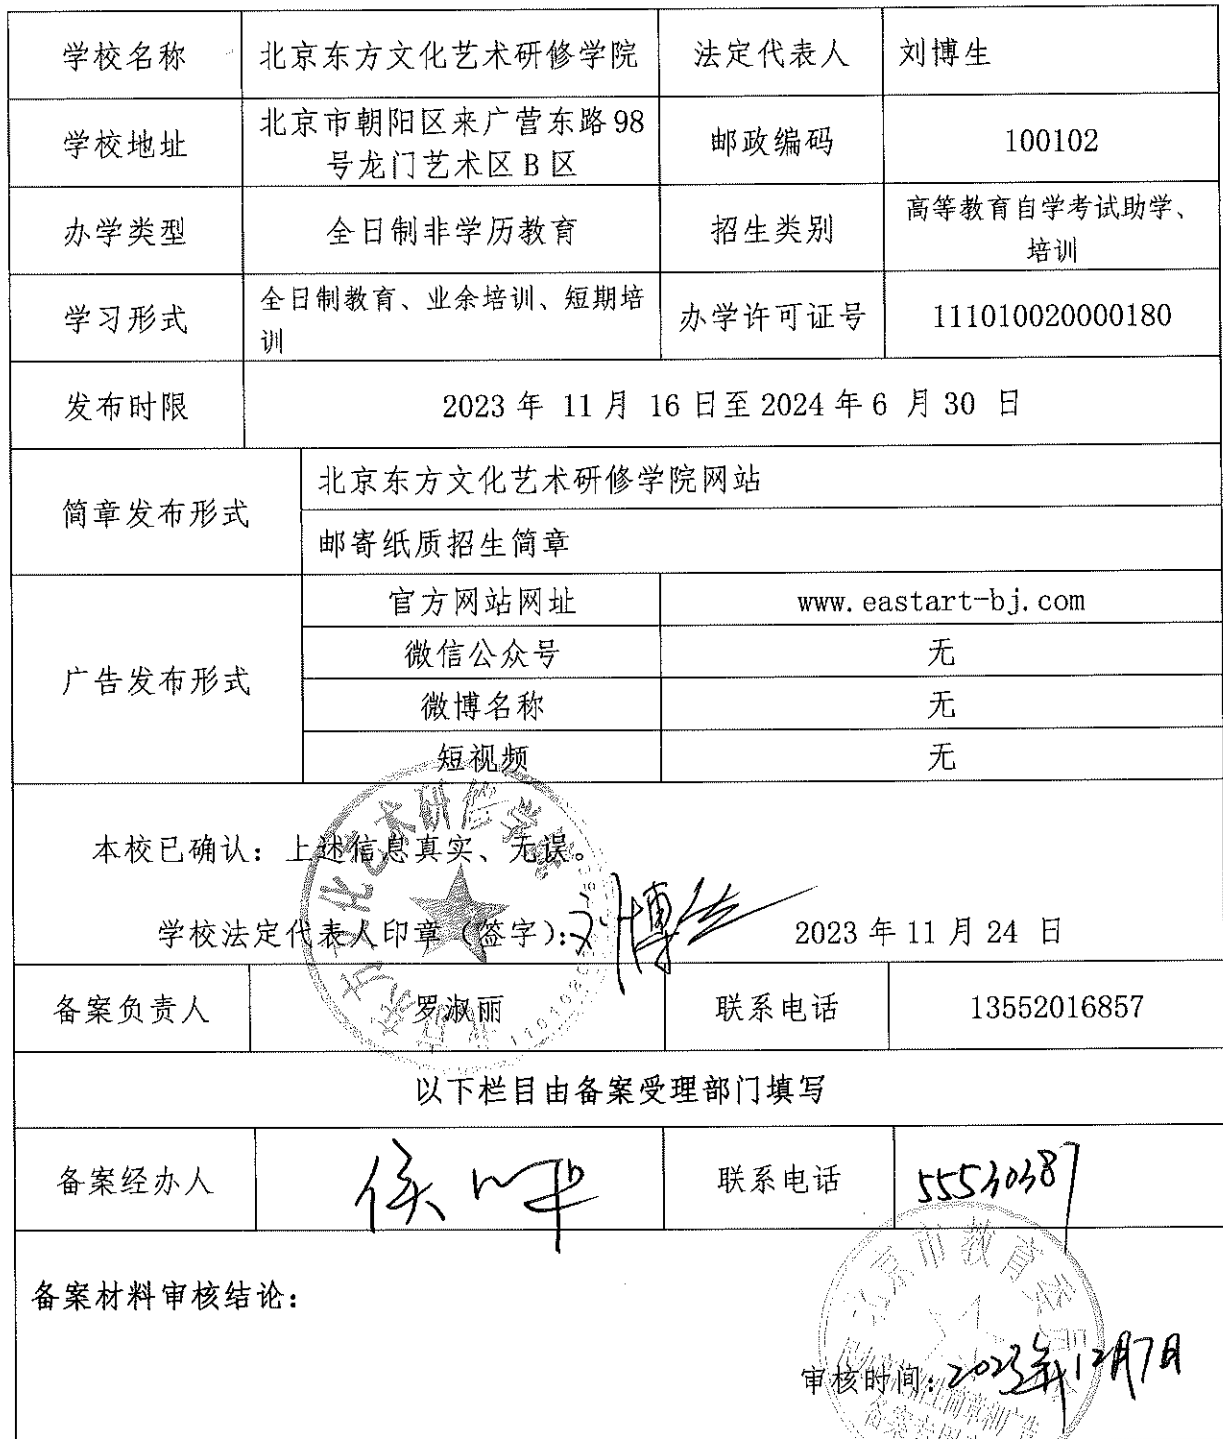 学校名称 北京东方文化艺术研修学院 法定代表人 刘博生
学校地址 北京市朝阳区来广营东路98号龙门艺术区B区 邮政编码 100102
办学类型 全日制非学历教育 招生类别 高等教育自学考试助学、培训
学习形式 全日制教育、业余培训、短期培训 办学许可证号 111010020000180
发布时限 2023年 11月 16日至2024年6 月30 日
简章发布形式 北京东方文化艺术研修学院网站
邮寄纸质招生简章
广告发布形式 官方网站网址 www.eastart-bj.com
微信公众号 无
微博名称 无
短视频 无
本校已确认：上述信息真实、无误。
学校法定代表人印章（签字）：刘博生 2023年11月24 日
备案负责人 罗淑丽 联系电话 13552016857
以下栏目由备案受理部门填写
备案经办人 联系电话 55530387
备案材料审核结论：
北京市教育委员会
审核时间：2023年12月7日